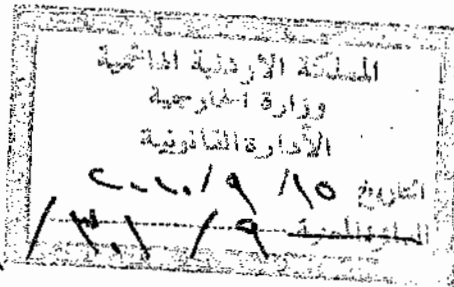 المملكة الاردنية الهاشمية
وزارة الخارجية
الأدارة القانونية
التاريخ ١٥/ ٩ /٢٠١٠
/ ٩ / ٣٠١ /